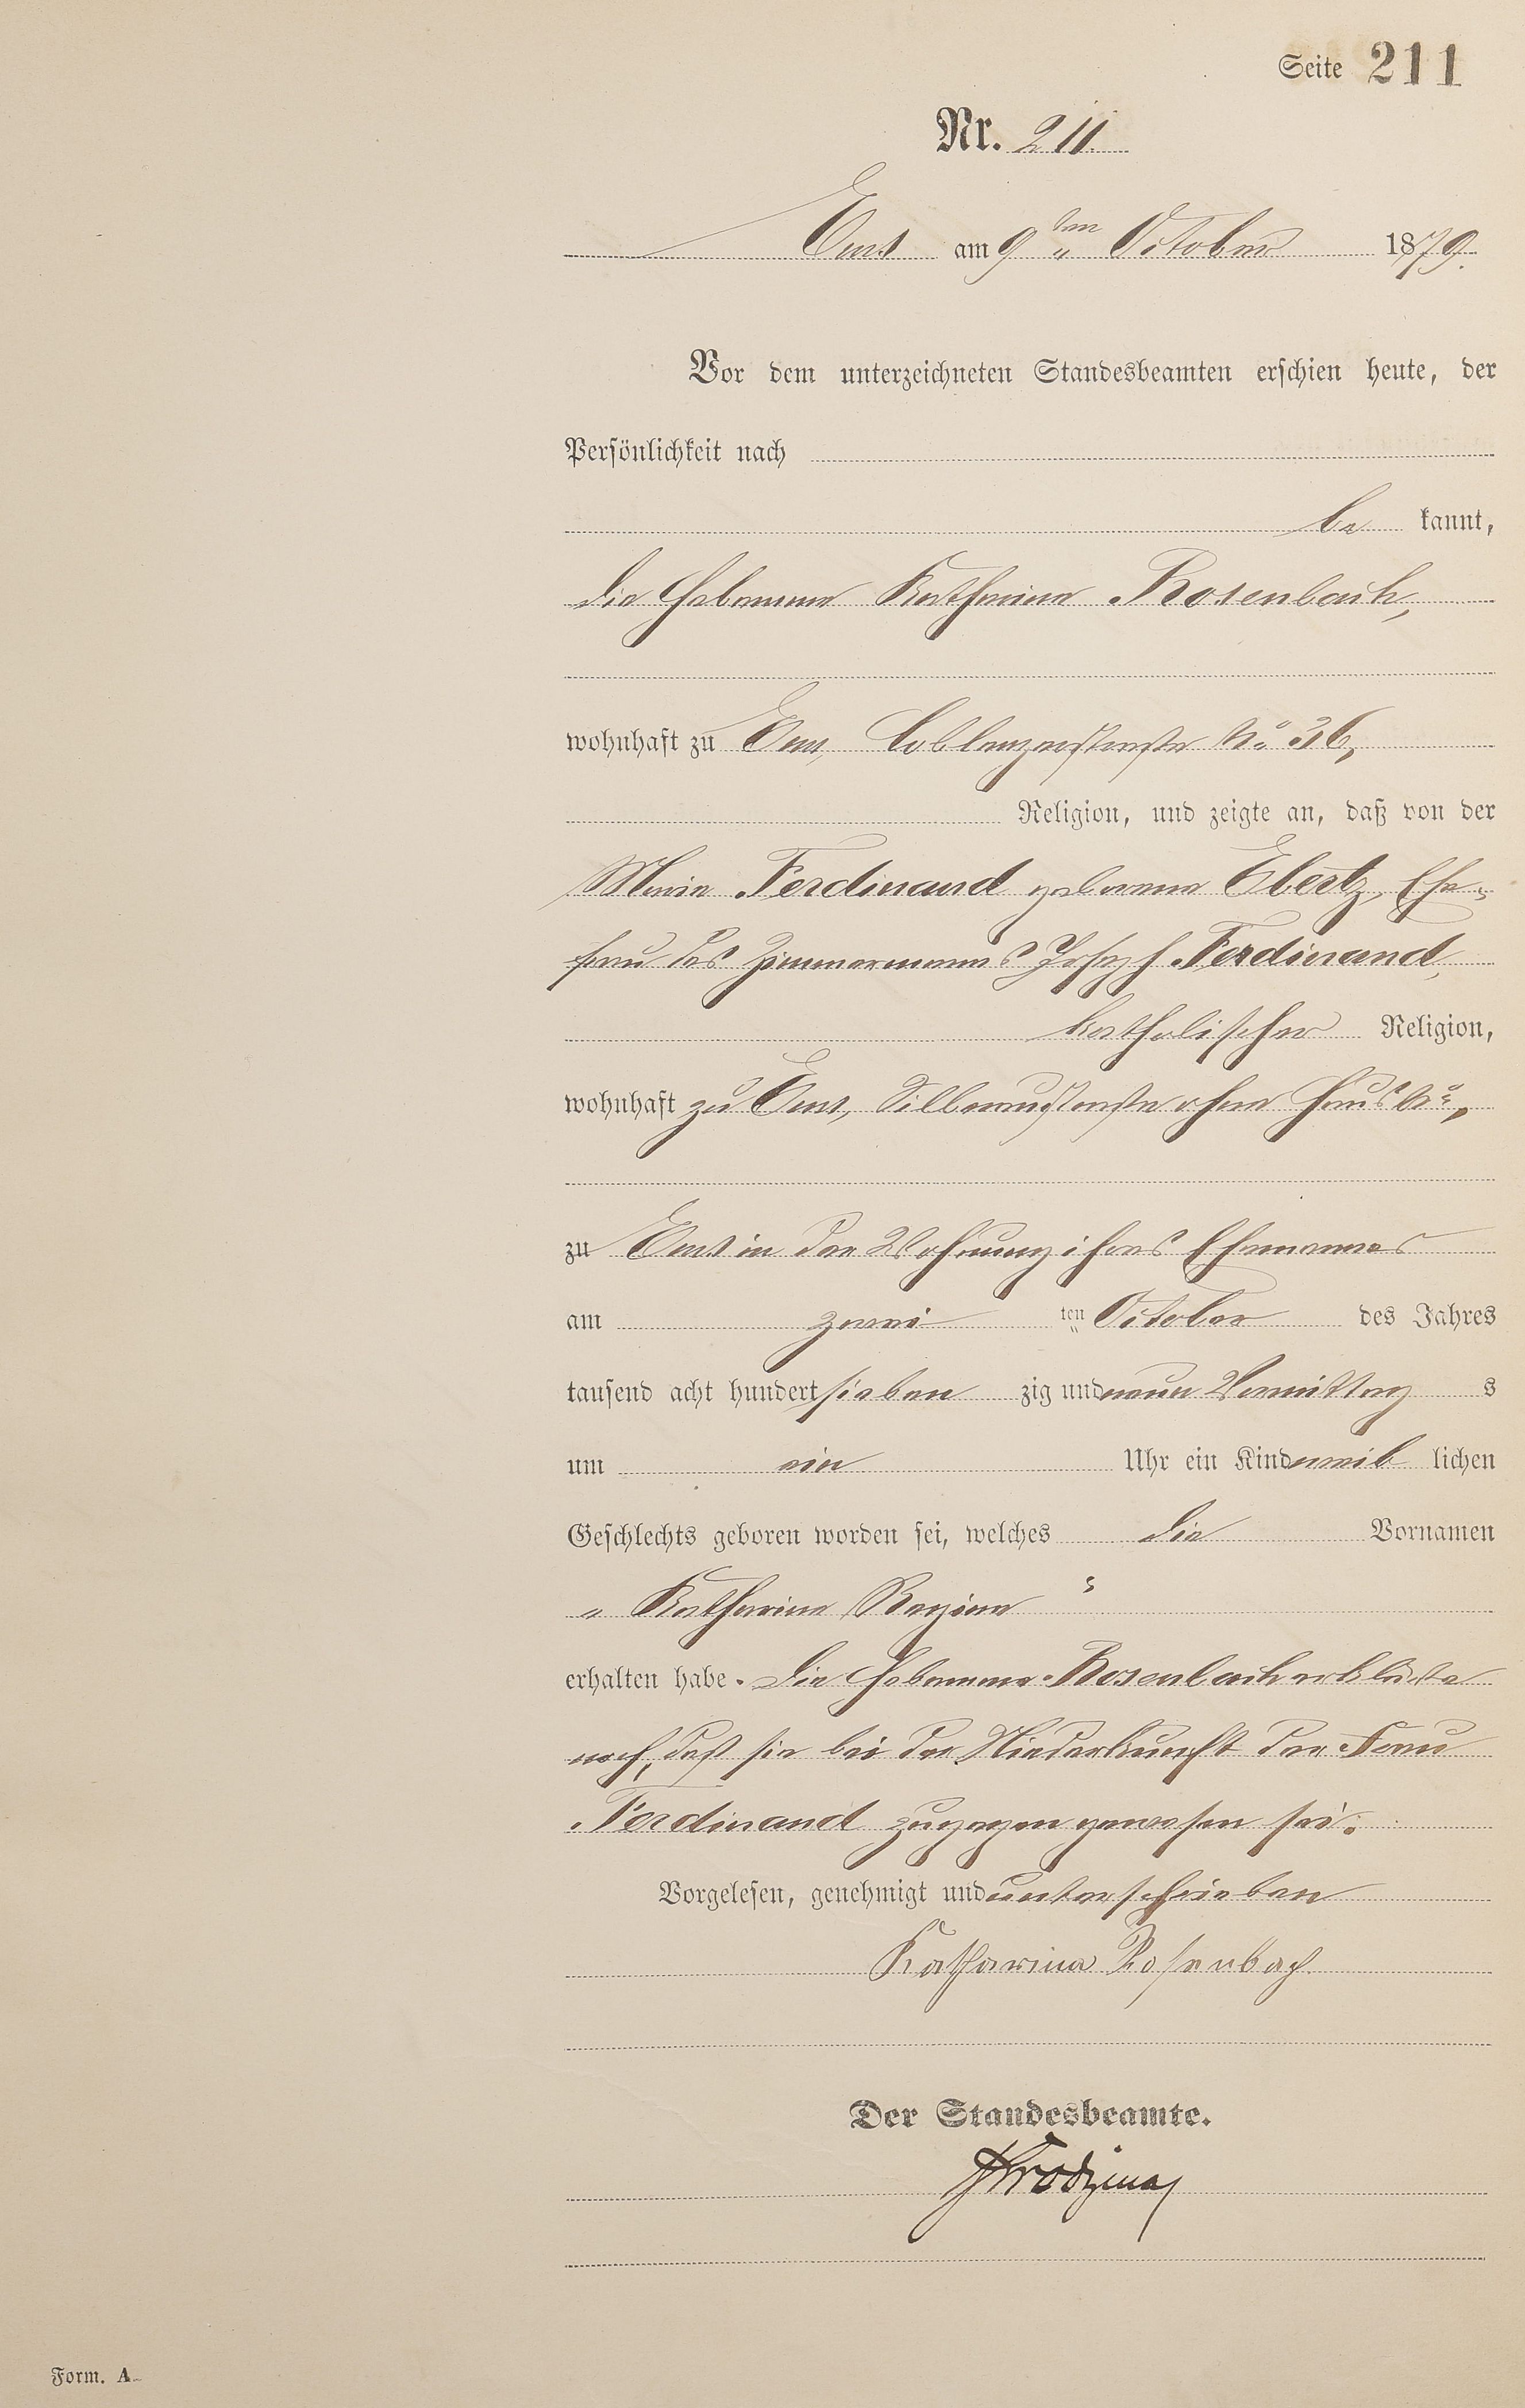 Seite 211
Nr. 211.
Ems am 9ten October 1879.
Vor dem unterzeichneten Standesbeamten erschien heute, der
Persönlichkeit nach
be kannt,
die Hebamme Katharina Rosenbach,
wohnhaft zu Ems, Coblenzerstraße No 36,
Religion, und zeigte an, daß von der
Maria Ferdinand geborene Ebertz, Ehe-
frau des Zimmermanns Joseph Ferdinand,
katholischer Religion,
wohnhaft zu Ems, Silberaustraße ohne Haus No,
zu Ems in der Wohnung ihres Ehemannes
am zwei ten October des Jahres
tausend acht hundert sieben zig und neun Vormittag s
um ein Uhr ein Kind weib lichen
Geschlechts geboren worden sei, welches die Vornamen
„ Katharina Regina "
erhalten habe. Die Hebamme Rosenbach erklärte
noch, daß sie bei der Niederkunft der Frau
Ferdinand zugegen gewesen sei.
Vorgelesen, genehmigt und unterschrieben
Katharina Rosenbach
Der Standesbeamte.
Form. A.